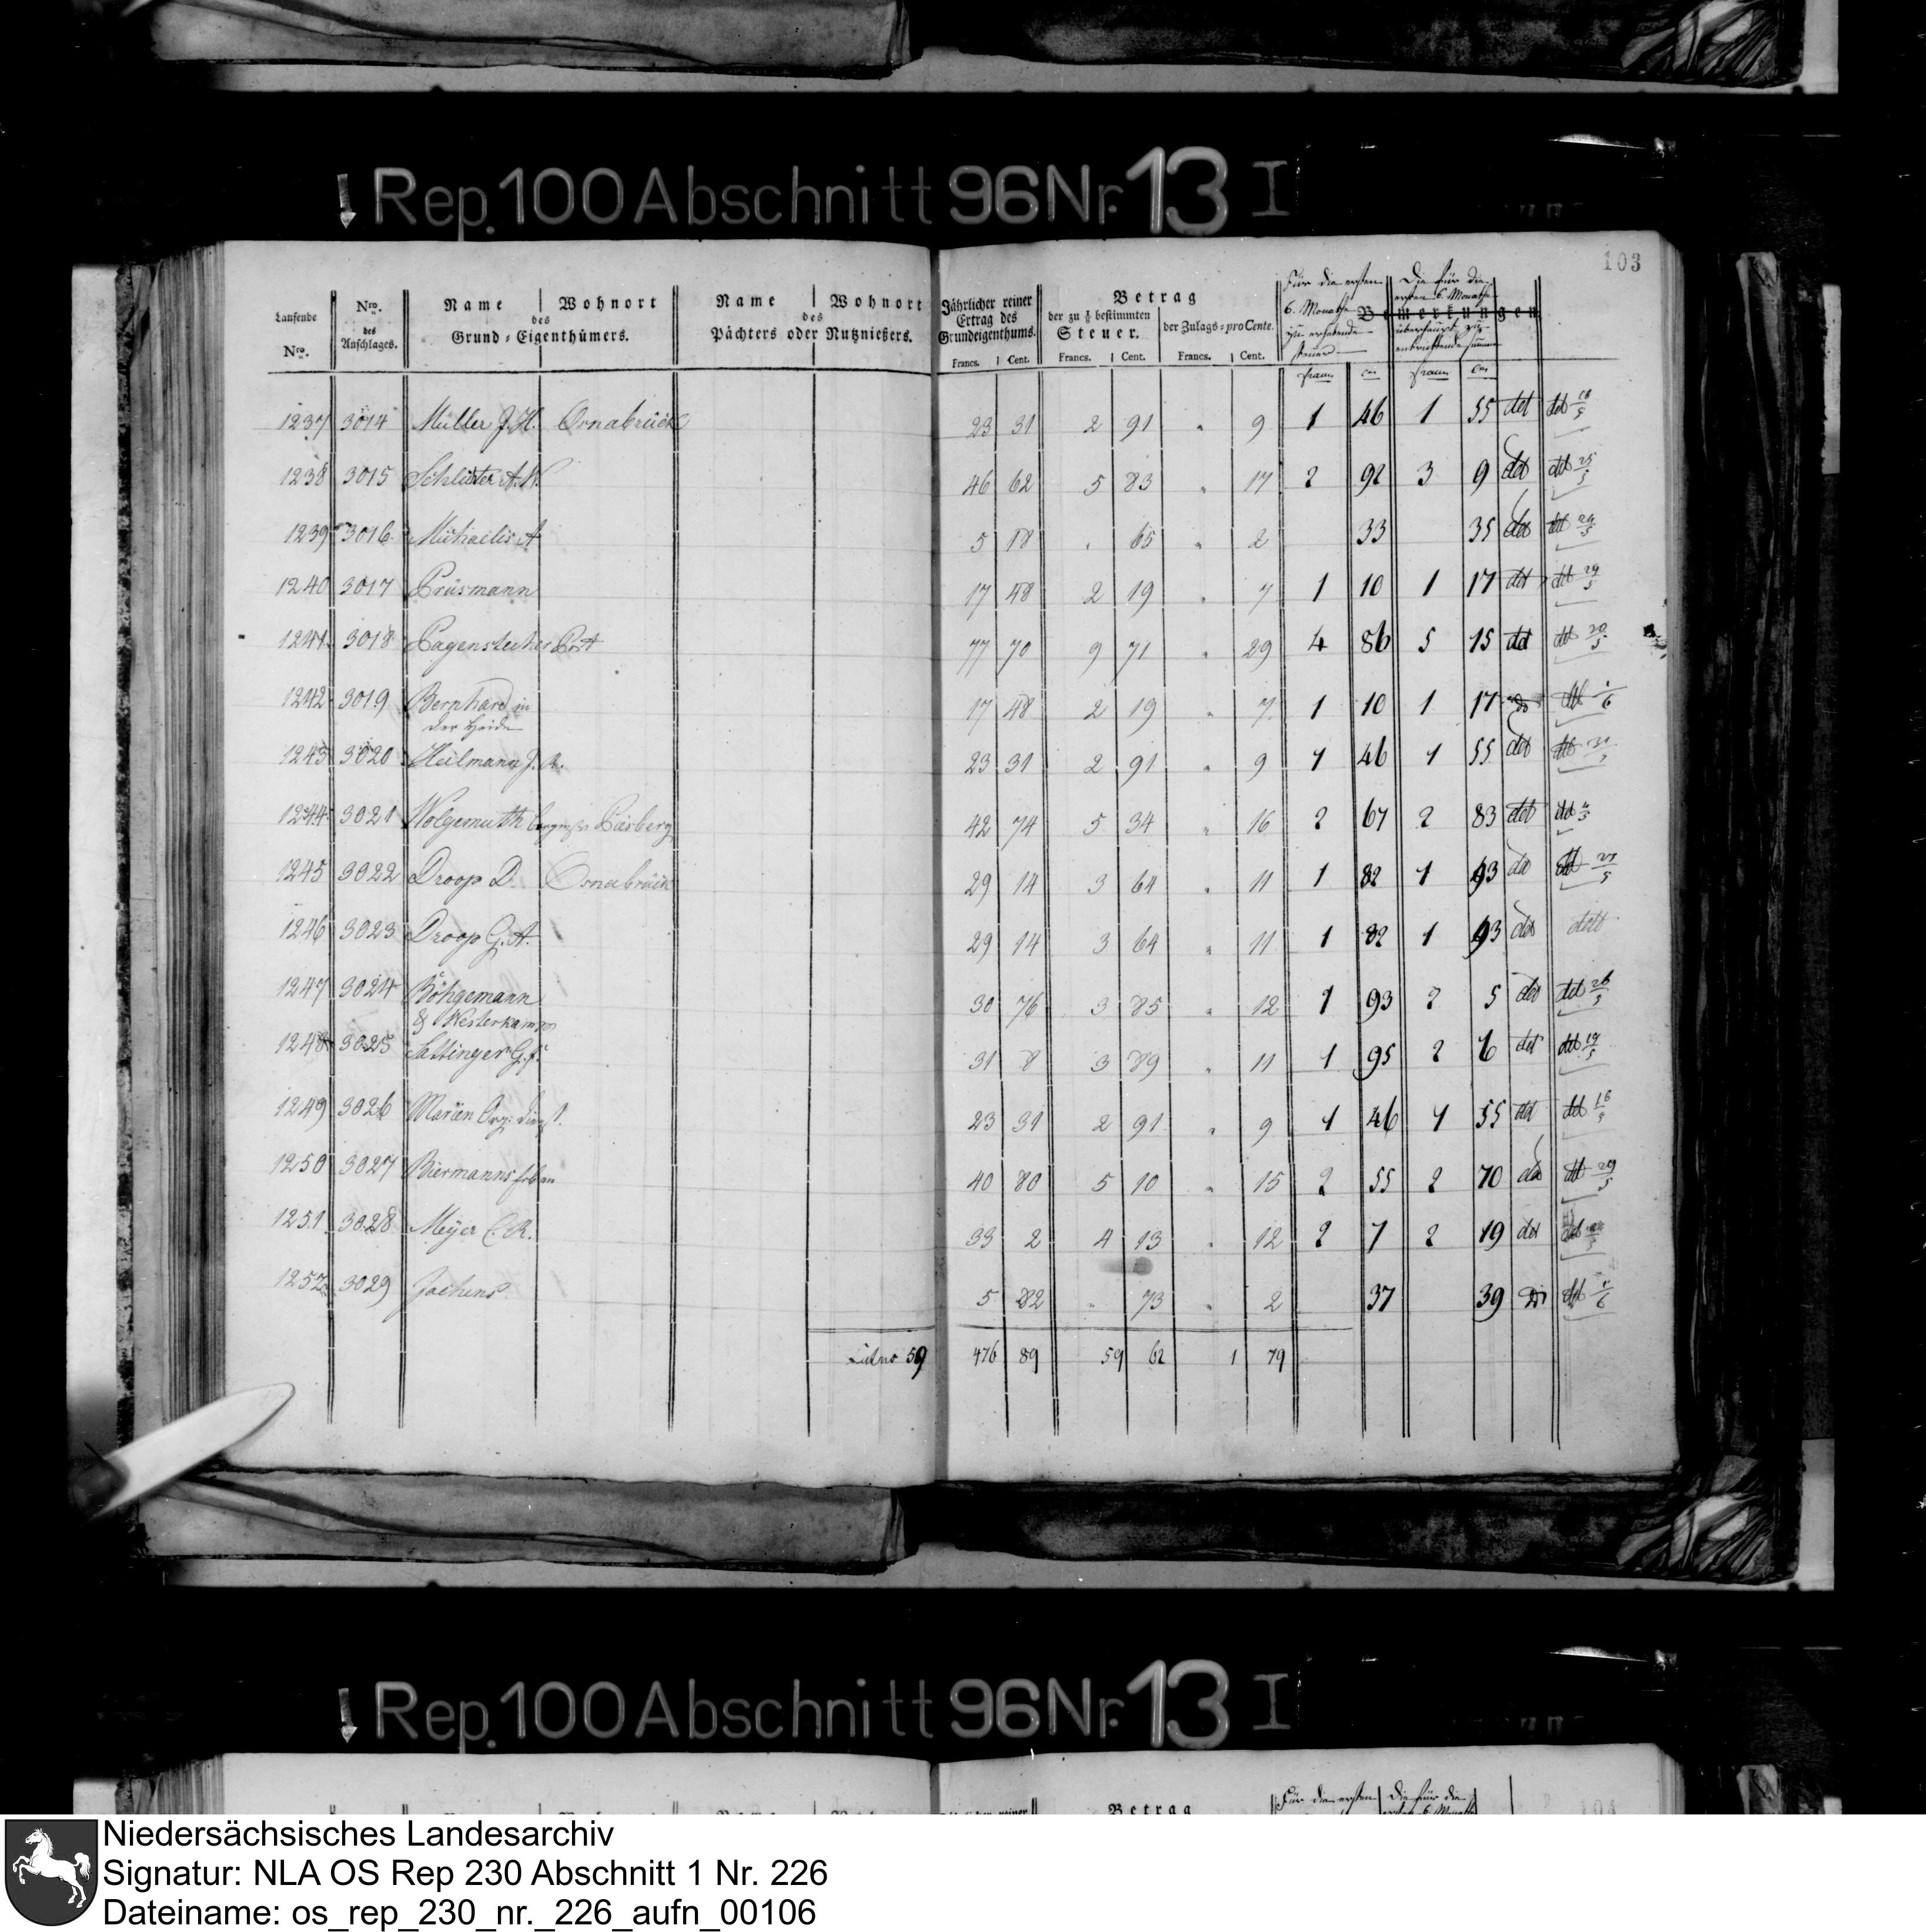 Rep. 100 Abschnitt 96 Nr. 13 I
103
Laufende Nro. | Nro. des Anschlages. | Name | Wohnort des Grund-Eigenthümers. | Name | Wohnort des Pächters oder Nutznießers. | Jährlicher reiner Ertrag des Grundeigenthums. Francs. Cent. | Betrag der zu ⅛ bestimmten Steuer. Francs. Cent. | der Zulags-pro Cente. Francs. Cent. | Bemerkungen
Für die ersten 6. Monathe zu erhebende Steuer | Die für die ersten 6. Monathe überhaupt zu entrichtende Summe
1237 3014 Müller J. H. Osnabrück 23 31 2 91 " 9 1 46 1 55 det det 18/5
1238 3015 Schlüter A. W. 46 62 5 83 " 17 2 92 3 9 det det 25/5
1239 3016 Michaelis A 5 18 " 65 " 2 33 35 det det 24/5
1240 3017 Prüsmann 17 48 2 19 " 7 1 10 1 17 det det 29/5
1241 3018 Pagenstecher 77 70 9 71 " 29 4 86 5 15 det det 20/5
1242 3019 Bernhard in
der Heide 17 48 2 19 " 7 1 10 1 17 det 1/6
1243 3020 Heilmann J. 23 31 2 91 " 9 1 46 1 55 det det
1244 3021 Wolgemuth Piesberg 42 74 5 34 " 16 2 67 2 83 det det
1245 3022 Droop D. Osnabrück 29 14 3 64 " 11 1 82 1 93 det det 27/5
1246 3023 Droop G. A. 29 14 3 64 " 11 1 82 1 93 det dett
1247 3024 Böhgemann
& Westerkamp 30 76 3 85 " 12 1 93 2 5 det det 26/5
1248 3025 Sattinger G. F. 31 8 3 89 " 11 1 95 2 6 det det 19/5
1249 3026 Marien 23 31 2 91 " 9 1 46 1 55 det det 16/5
1250 3027 Biermanns Erben 40 80 5 10 " 15 2 55 2 70 det det 29/5
1251 3028 Meÿer C. R. 33 2 4 13 " 12 2 7 2 19 det det
1252 3029 Jochens 5 82 " 73 " 2 37 39 det 1/6
Latus 59 476 89 59 62 1 79
Rep. 100 Abschnitt 96 Nr. 13 I
Betrag
Für die ersten | Die für die
104
Niedersächsisches Landesarchiv
Signatur: NLA OS Rep 230 Abschnitt 1 Nr. 226
Dateiname: os_rep_230_nr._226_aufn_00106